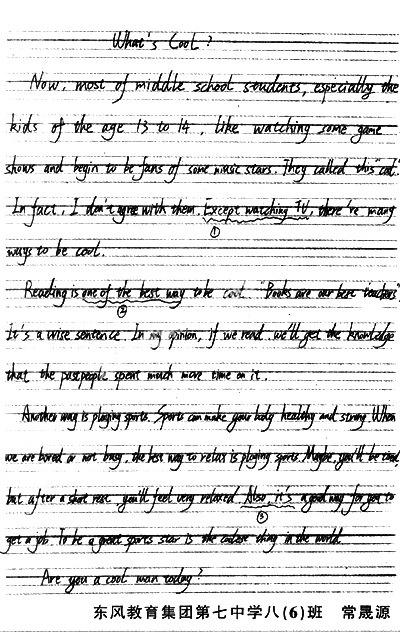 What's Cool?
Now, most of middle school students, especially the
kids of the age 13 to 14, like watching some game
shows and begin to be fans of some music stars. They called this "cool".
In fact, I don't agree with them. Except watching TV, there're many
①
ways to be cool.
Reading is one of the best way to be cool. "Books are our best teachers".
②
It's a wise sentence. In my opinion, if we read, we'll get the knowledge
that the past people spent much more time on it.
Another way is playing sports. Sports can make your body healthy and strong. When
we are bored or not busy, the best way to relax is playing sports. Maybe, you'll be tired,
but after a short rest, you'll feel very relaxed. Also, it's a good way for you to
③
get a job. To be a great sports star is the coolest thing in the world.
Are you a cool man today?
东风教育集团第七中学八(6)班 常晟源